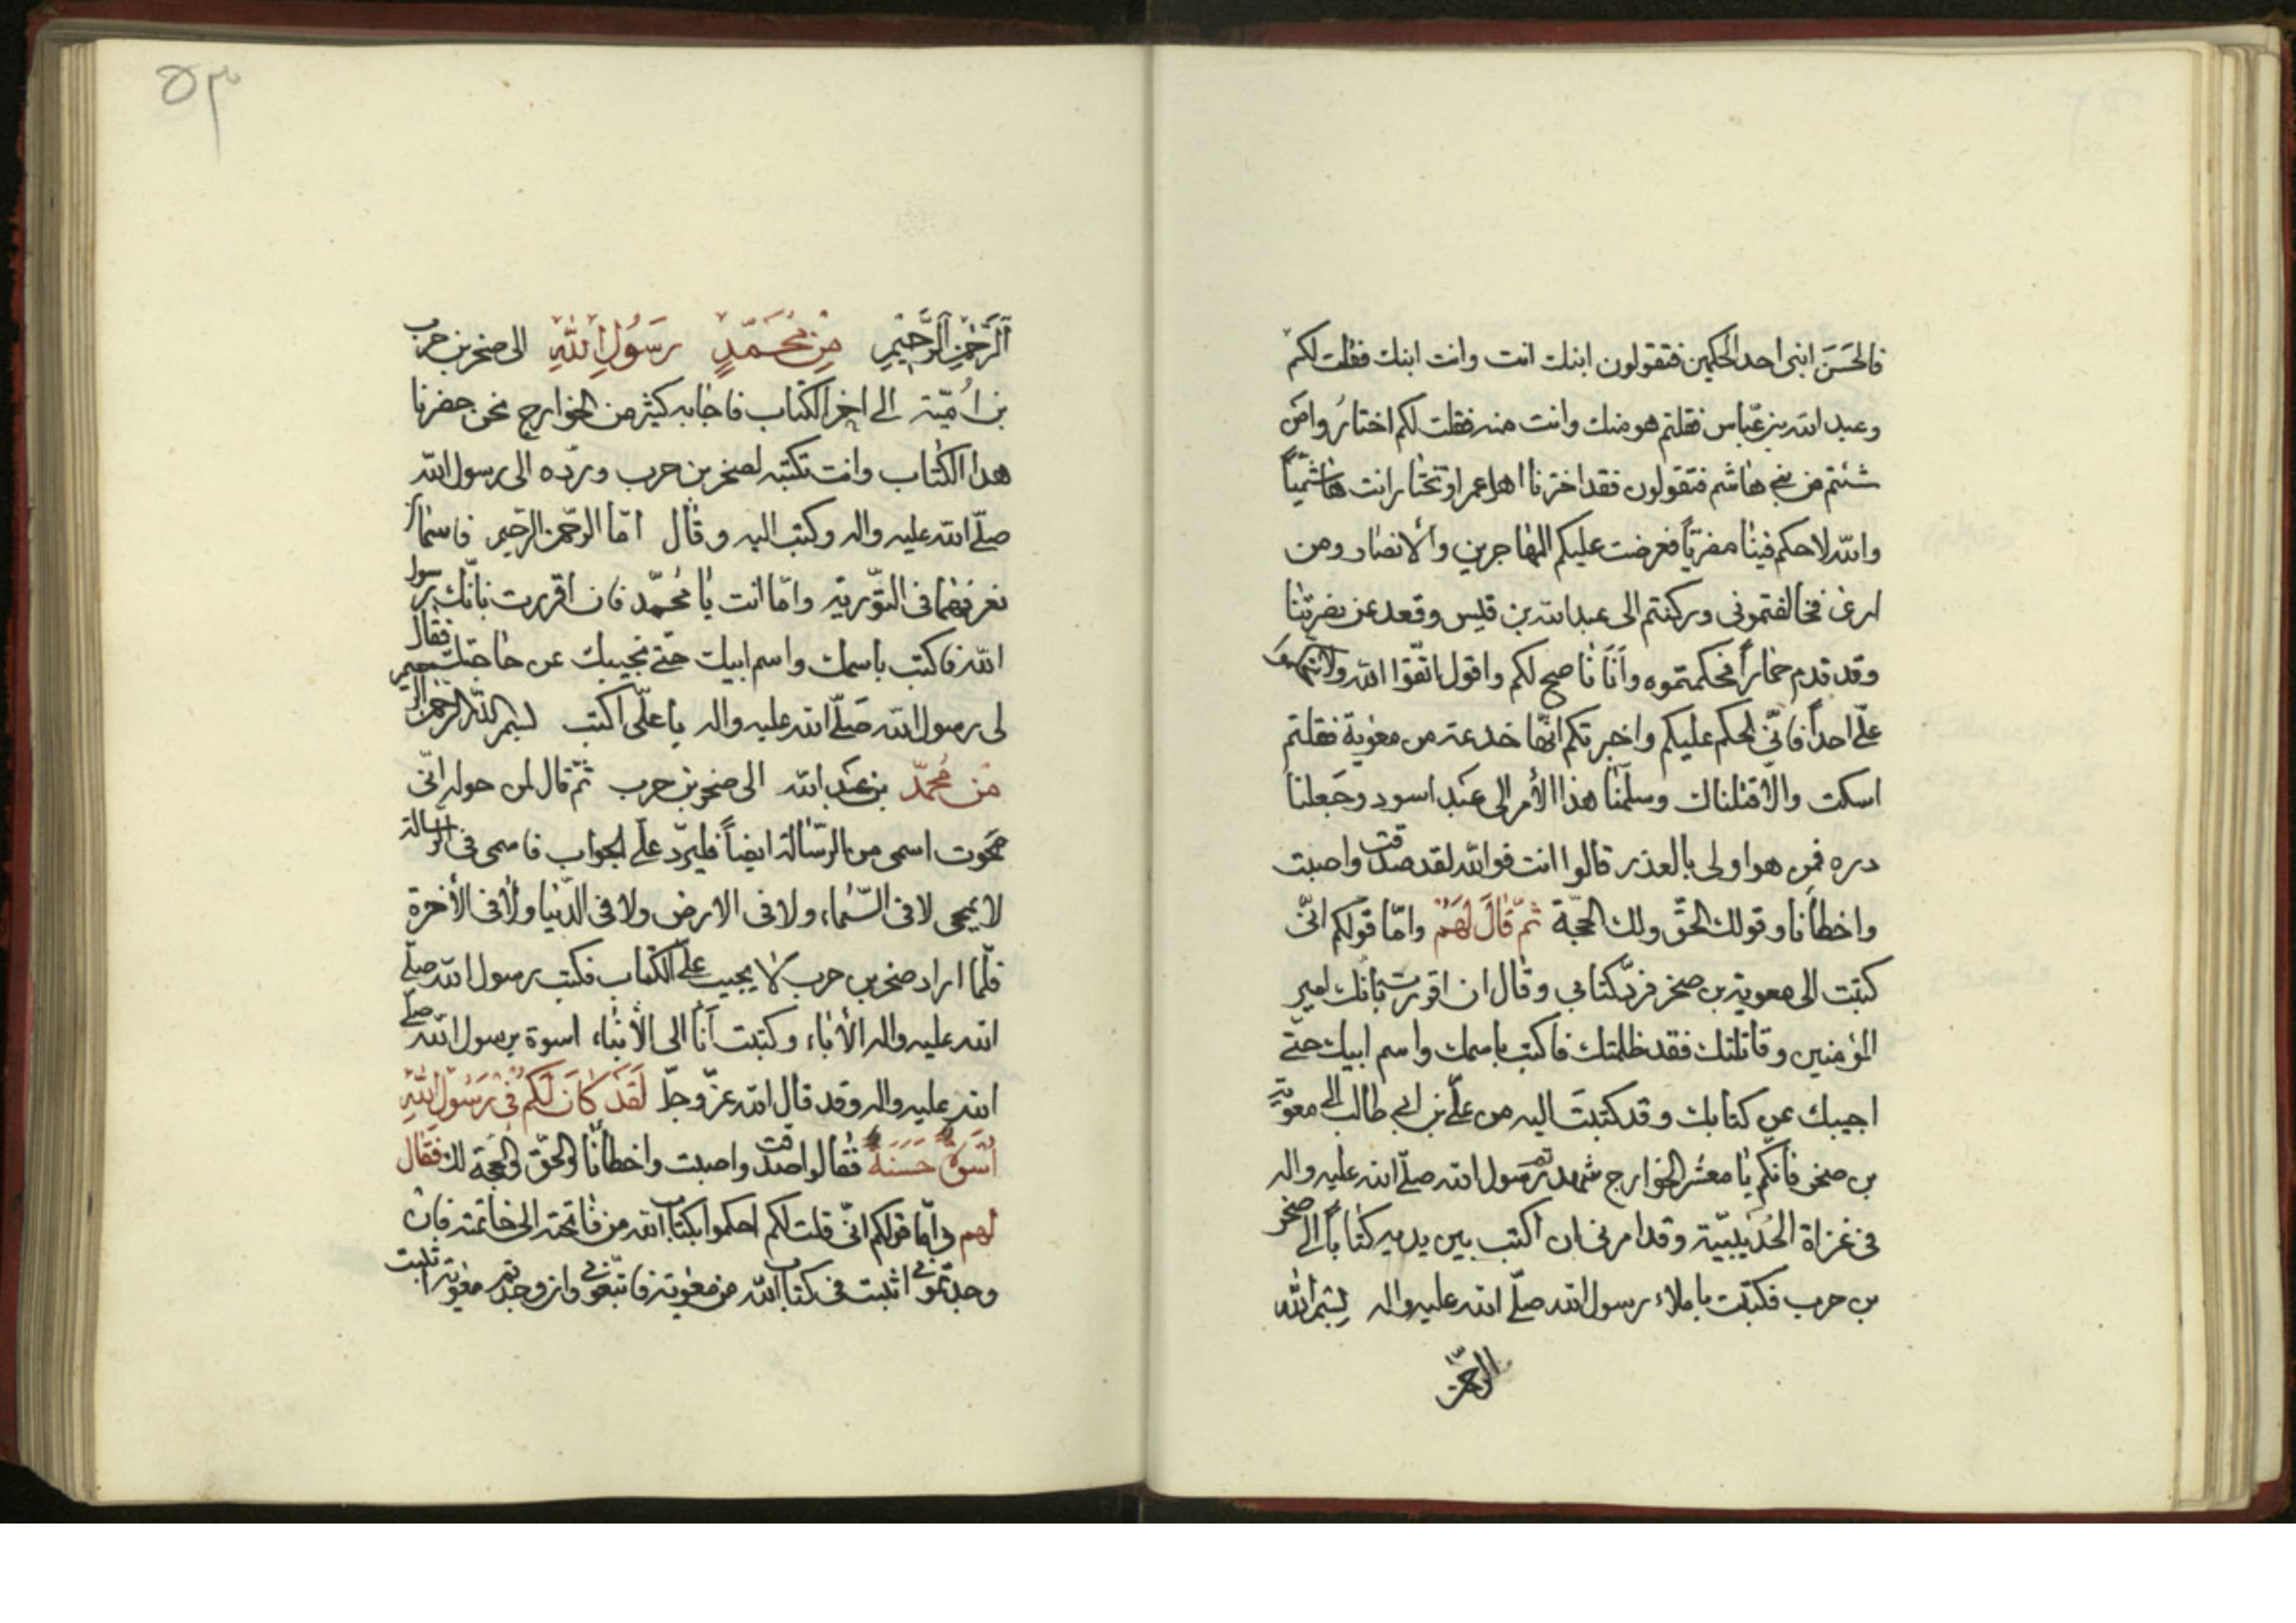 فالحَسَنَ ابنی احد الحکمین فتقولون ابنك انت وانت ابنك فقلت لکم
وعبد الله بن عبّاس فقلتم هو منك وانت منه فقلت لکم اختارُوا من
شئتم من بنی هاشم فتقولون فقد اخترنا اهل عمرا وتختار انت هاشمیّاً
والله لا حکم فینا مضریّاً فعرضت علیکم المهاجرین والانصار ومن
اری فخالفتمونی ورکنتم الی عبد الله بن قیس وقعد عن نصرتنا
وقد قدم حماراً فحکمتموه وأنا ناصح لکم واقول اتّقوا الله ولا
علیّ احداً فانّی احکم علیکم واخبرتکم انّها خدعة من معویة فقلتم
اسکت والّا قتلناك وسلّمنا هذا الأمر الی عَبد اسود وجَعلنا
دره فمن هو اولی بالعذر قالوا انت فوالله لقد صدقت واصبت
واخطأنا وقولك الحقّ ولك الحجّة ثمّ قالَ لهَم وامّا قولکم انّی
کتبت الی معویة بن صخر فردّ کتابی وقال ان اقررت بانّك امیر
المؤمنین وقاتلتك فقد ظلمتك فاکتب باسمك واسم ابیك حتّی
اجیبك عن کتابك وقد کتبتَ الیه من علیّ بن ابی طالب الی معویة
بن صخر فانّکم یا معشر الخوارج شهدتم رسول الله صلّی الله علیه واله
فی غزاة الحُدَیبیّة وقد امرنی ان اکتب بین یدیه کتاباً الی صخر
بن حرب فکتبت باملاء رسول الله صلّی الله علیه واله بِسْمِ الله
الرحمن
٥٣
اَلرَّحْمٰنِ الرَّحیْمِ مِن محَمّدٍ رَسُولِ اللهِ الی صخر بن حرب
بن اُمیّة الی اخر الکتاب فاجابه کثیر من الخوارج نحن حضرنا
هذا الکتاب وانت تکتبه لصخر بن حرب وردّه الی رسول الله
صلّی الله علیه واله وکتب الیه وقال امّا الرحمن الرّحیم فاسمان
نعرفهما فی التوریة وامّا انت یا محُمّد فان اقررت بانّك رسول
الله فاکتب باسمك واسم ابیك حتّی نجیبك عن حاجتك فقال
لی رسول الله صَلّی الله علیه واله یا علیّ اکتب بسم الله الرحمن الرحیم
من محُمّد بن عَبد الله الی صخر بن حرب ثمّ قال لمن حوله انّی
محوت اسمی من الرّسالة ایضاً فلیردّ علیّ الجواب فاسمی فی الرسالة
لا یمحی لا فی السّماء ولا فی الارض ولا فی الدّنیا ولا فی الأخرة
فلمّا اراد صخر بن حرب لا یجیب علی الکتاب فکتب رسول الله صلّی
الله علیه واله الأباء وکتبت أنا الی الأبناء اسوة برسول الله صلّی
الله علیه واله وقد قال الله عزّ وجلّ لَقَدْ کانَ لَکُمْ فی رَسُولِ اللهِ
اُسْوَةٌ حَسَنَةٌ فقالوا صدقت واصبت واخطأنا والحقّ والحجّة لك فَقَال
لهم وامّا قولکم انّی قلت لکم احکموا بکتاب الله من فاتحته الی خاتمته فان
وجدتمونی اثبت فی کتاب الله من معٰویة فاتبّعونی وان وجدتم معٰویة اثبت